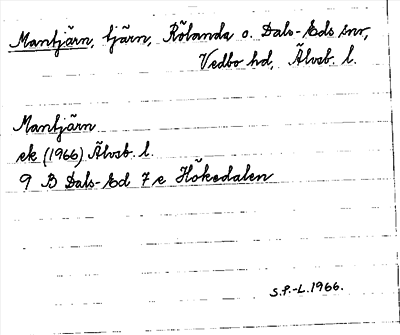 Mantjärn, tjärn, Rölanda o. Dals-Eds snr,
Vedbo hd, Älvsb. l.
Mantjärn
ek (1966) Älvsb. l.
9 B Dals-Ed 7 e Hökedalen
S.P.-L. 1966.